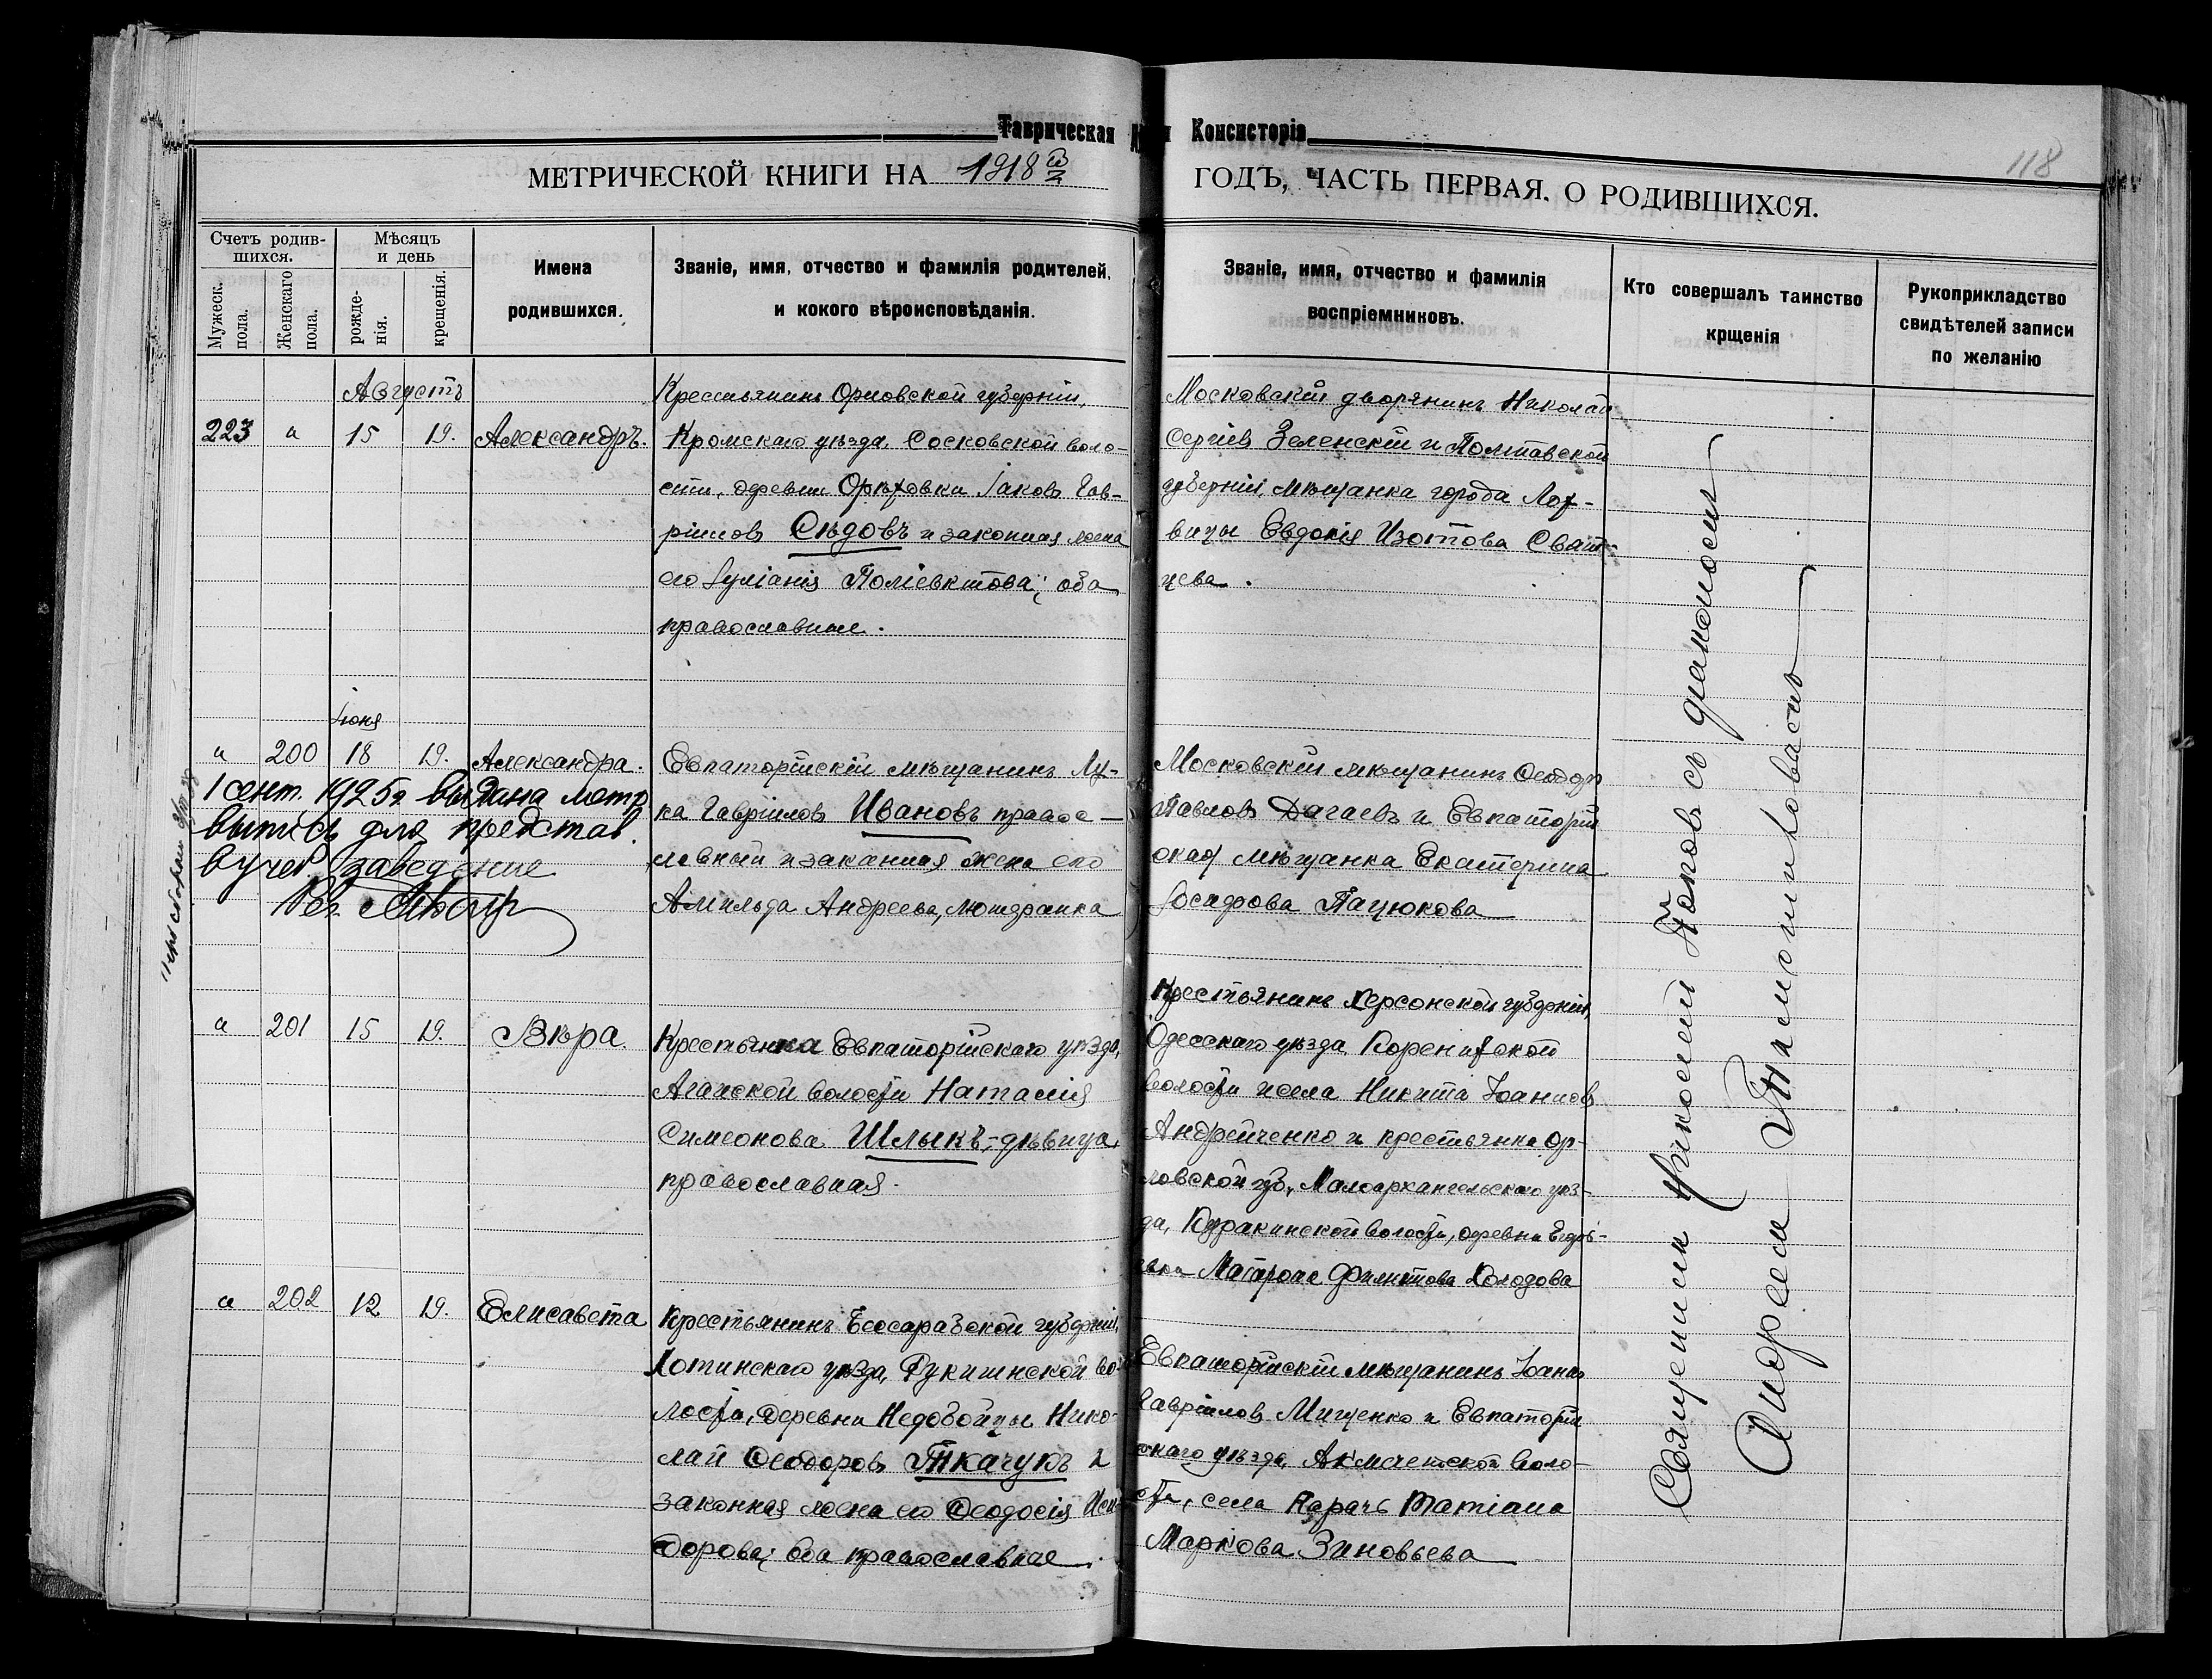 Таврическая
Консисторія
118
МЕТРИЧЕСКОЙ КНИГИ НА 1918й
ГОДЪ, ЧАСТЬ ПЕРВАЯ. О РОДИВШИХСЯ.
Счетъ родив-
шихся.
Мужеск.
пола.
Женскаго
пола.
Мѣсяцъ
и день
рожде-
нія.
крещенія.
Имена
родившихся.
Званіе, имя, отчество и фамилія родителей,
и кокого вѣроисповѣданія.
Званіе, имя, отчество и фамилія
воспріемниковъ.
Кто совершалъ таинство
крщенія
Рукоприкладство
свидѣтелей записи
по желанію
Августъ
223 „ 15 19. Александръ.
Крестьянинъ Орловской губерніи,
Кромскаго уѣзда, Сосковской воло-
сти, деревни Орѣховки Іаковъ Гав-
ріиловъ Сѣдовъ и законная жена
его Іуліанія Поліевктова; оба
православные.
Московскій дворянинъ Николай
Сергіевъ Зеленскій и Полтавской
губерніи, мѣщанка города Лох-
вицы Евдокія Изотова Сват-
цева.
Іюня
„ 200 18 19. Александра.
Евпаторійскій мѣщанинъ Лу-
ка Гавріиловъ Ивановъ правос-
лавный и законная жена его
Амильда Андреева, лютеранка
Московскій мѣщанинъ Ѳеодоръ
Павловъ Дагаевъ и Евпаторій
ская мѣщанка Екатерина
Іосифова Пацюкова
1 сент. 1925г. выдана метр.
выпись для представ.
в учеб. заведение
„ 201 15 19. Вѣра.
Крестьянка Евпаторійскаго уѣзда,
Агайской волости Наталія
Симеонова Шлыкъ,-дѣвица,
православная.
Крестьянинъ Херсонской губерніи,
Одесскаго уѣзда, Коренихской
волости и села Никита Іоанновъ
Андрейченко и крестьянка Ор-
ловской губ., Малоархангельскаго уѣз-
да, Куракинской волости, деревни Егорь-
евки Матрона Филиппова Холодова
„ 202 12 19. Елисавета
Крестьянинъ Бессарабской губерніи,
Хотинскаго уѣзда, Рукшинской во
лости, деревни Недобойцы Нико-
лай Ѳеодоровъ Ткачукъ и
законная жена его Ѳеодосія Иси-
дорова; оба православные.
Евпаторійскій мѣщанинъ Іоаннъ
Гавріиловъ Мищенко и Евпаторій
скаго уѣзда, Акмечетской воло-
сти, села Карачъ Татіана
Маркова Зиновьева
Священникъ Николай Поповъ съ діакономъ
Андреем